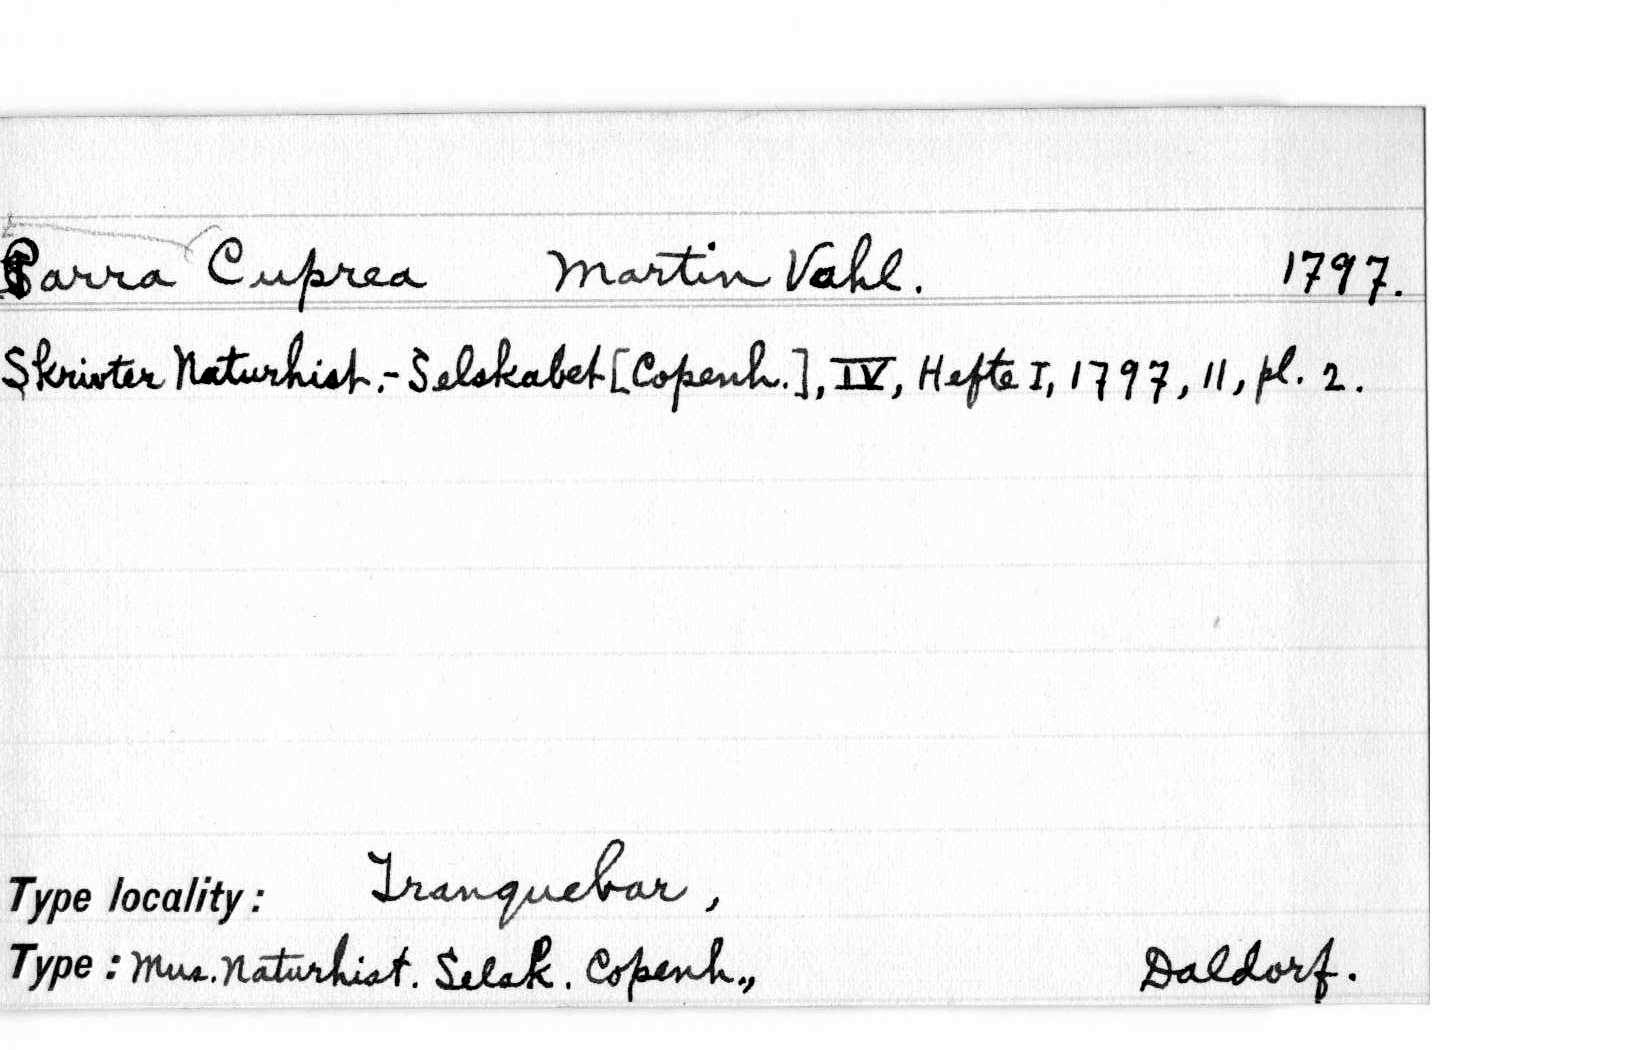 Parra Cuprea Martin Vahl. 1797.
Skrivter Naturhist.-Selskabet [Copenh.], IV, Hefte I, 1797, 11, pl. 2.
Type locality: Tranquebar,
Type: Mus. Naturhist. Selsk. Copenh., Daldorf.